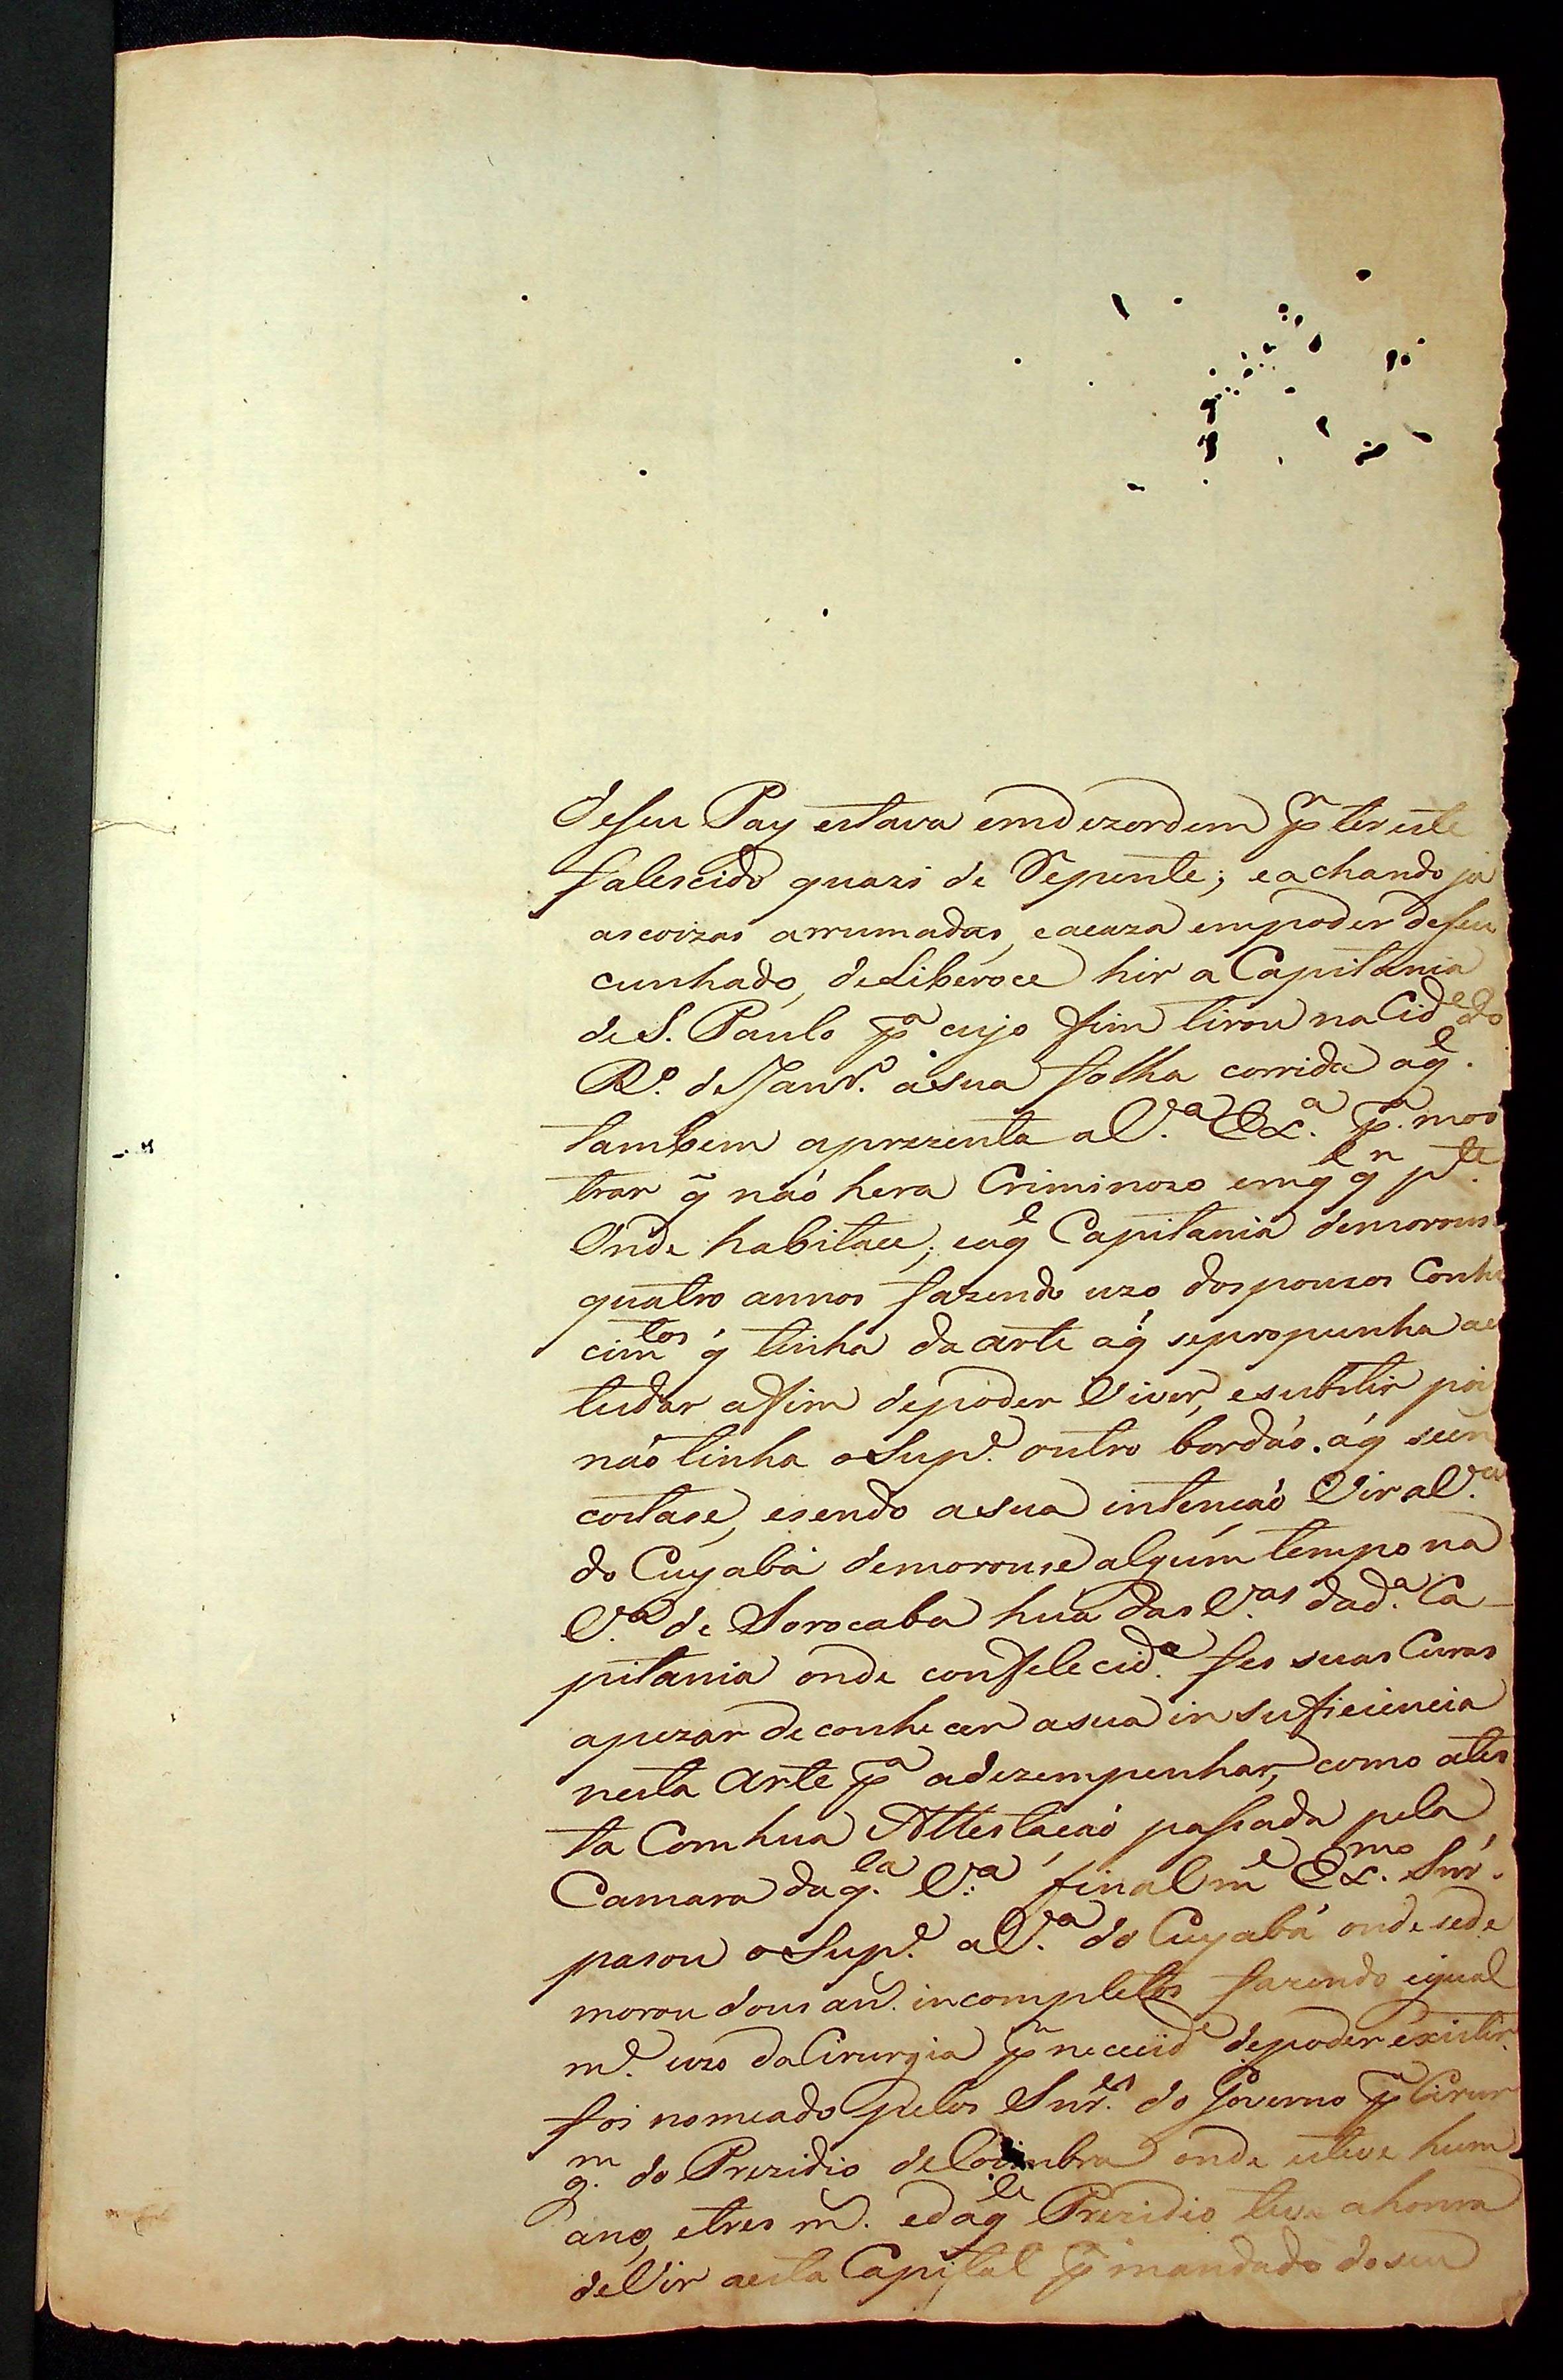 deseu Pay estava emdezordem p.r ter este
falescido quazi de Repente; eachando ja
ascoizas arrumadas, eacaza empoder deseu
cunhado, deLiberoce hir a Capitania
de S. Paulo p.a cujo fim tirou na Cid.e do
R.o deJanr.o asua folha corrida aq.l
tambem aprezenta aV.a Ex.a p.a mos
trar q̃ naõ hera Criminozo em q.l q.r p.te
Onde habitace; e aq.l Capitania demorouse
quatro annos fazendo uzo dospoucos Conhe
cim.tos q̃ tinha da arte aq̃ sepropunha aes
tudar afim depoder Viver, esubsistir pois
naõ tinha oSup.e outro bordaõ. aq̃ seen
costase, esendo asua intençaõ Vir aV.a
do Cuyabá demorouse algum tempo na
V.a de Sorocaba hũa das V.as dad.a Ca
pitania onde com felecid.e fes suas Curas
apezar deconhecer asua insuficiencia
nesta Arte p.a adezempenhar, como ates
ta Com hua Attestaçaõ passada pela
Camara daq.la V.a, final m.e Ex.mo Snr.
pasou oSup.e aV.a do Cuyabá onde sede
morou dous an.s incompletos fazendo igual
m.e uzo daCirurgia p.r necessid.e depoder existir.
foi nomeado pelos Snr.es do Governo p.r Cirur
g.m do Prezidio deCoimbra onde esteve hum
ano, etres m.s edaq.le Prezidio teve ahonra
deVir aesta Capital p.r mandado doseu